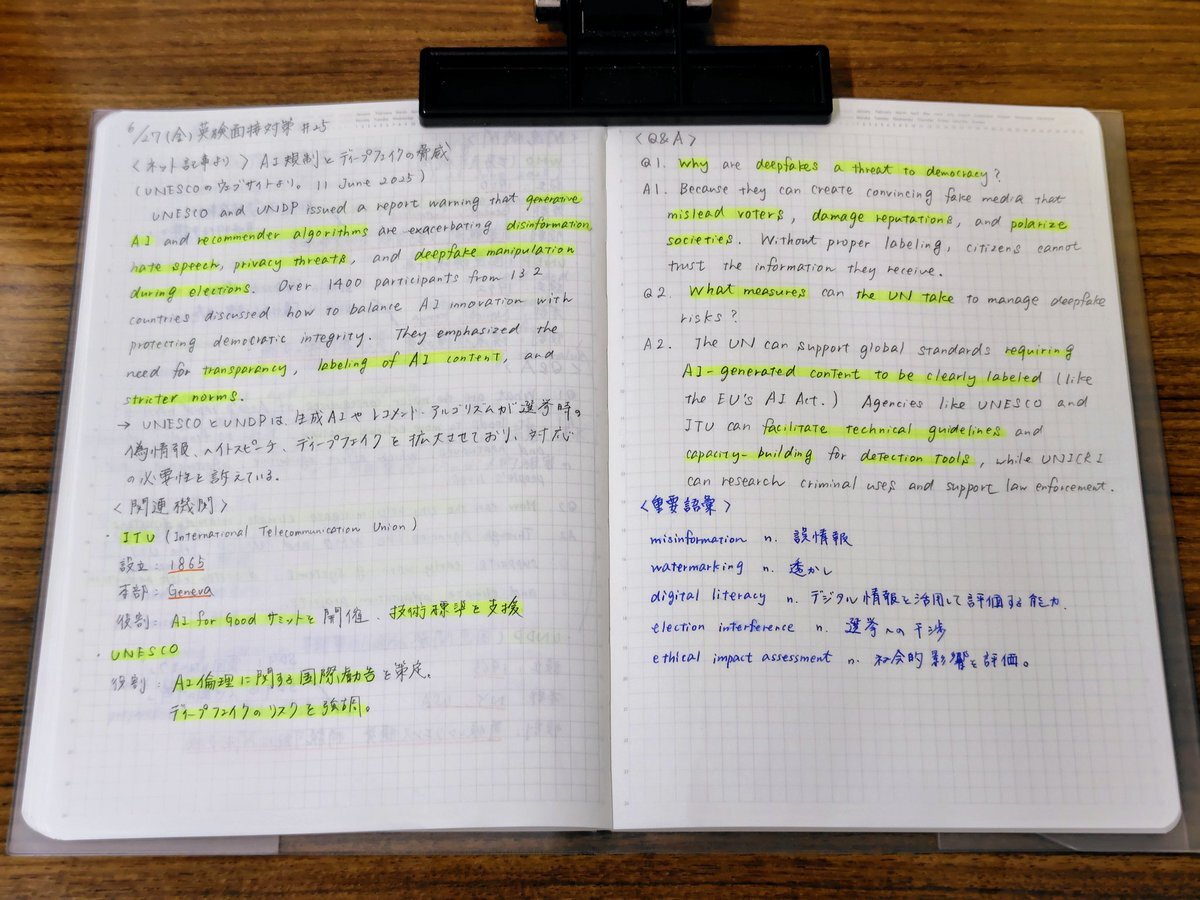 6/27(金) 英検面接対策 #25
〈ネット記事より〉 AI規制とディープフェイクの脅威
(UNESCOのウェブサイトより。 11 June 2025)
UNESCO and UNDP issued a report warning that generative
AI and recommender algorithms are exacerbating disinformation,
hate speech, privacy threats, and deepfake manipulation
during elections. Over 1400 participants from 132
countries discussed how to balance AI innovation with
protecting democratic integrity. They emphasized the
need for transparancy, labeling of AI content, and
stricter norms.
→ UNESCOとUNDPは、生成AIやレコメンド、アルゴリズムが選挙時の
偽情報、ヘイトスピーチ、ディープフェイクを拡大させており、対応
の必要性を訴えている。
〈関連機関〉
・ITU (International Telecommunication Union)
設立: 1865
本部: Geneva
役割: AI for Good サミットを開催、技術標準を支援
・UNESCO
役割: AI倫理に関する国際勧告を策定。
ディープフェイクのリスクを強調。
〈Q&A〉
Q1. Why are deepfakes a threat to democracy?
A1. Because they can create convincing fake media that
mislead voters, damage reputations, and polarize
societies. Without proper labeling, citizens cannot
trust the information they receive.
Q2. What measures can the UN take to manage deepfake
risks?
A2. The UN can support global standards requiring
AI-generated content to be clearly labeled (like
the EU's AI Act.) Agencies like UNESCO and
ITU can facilitate technical guidelines and
capacity-building for detection tools, while UNICRI
can research criminal uses and support law enforcement.
〈重要語彙〉
misinformation n. 誤情報
watermarking n. 透かし
digital literacy n. デジタル情報を活用して評価する能力.
election interference n. 選挙への干渉
ethical impact assessment n. 社会的影響を評価。